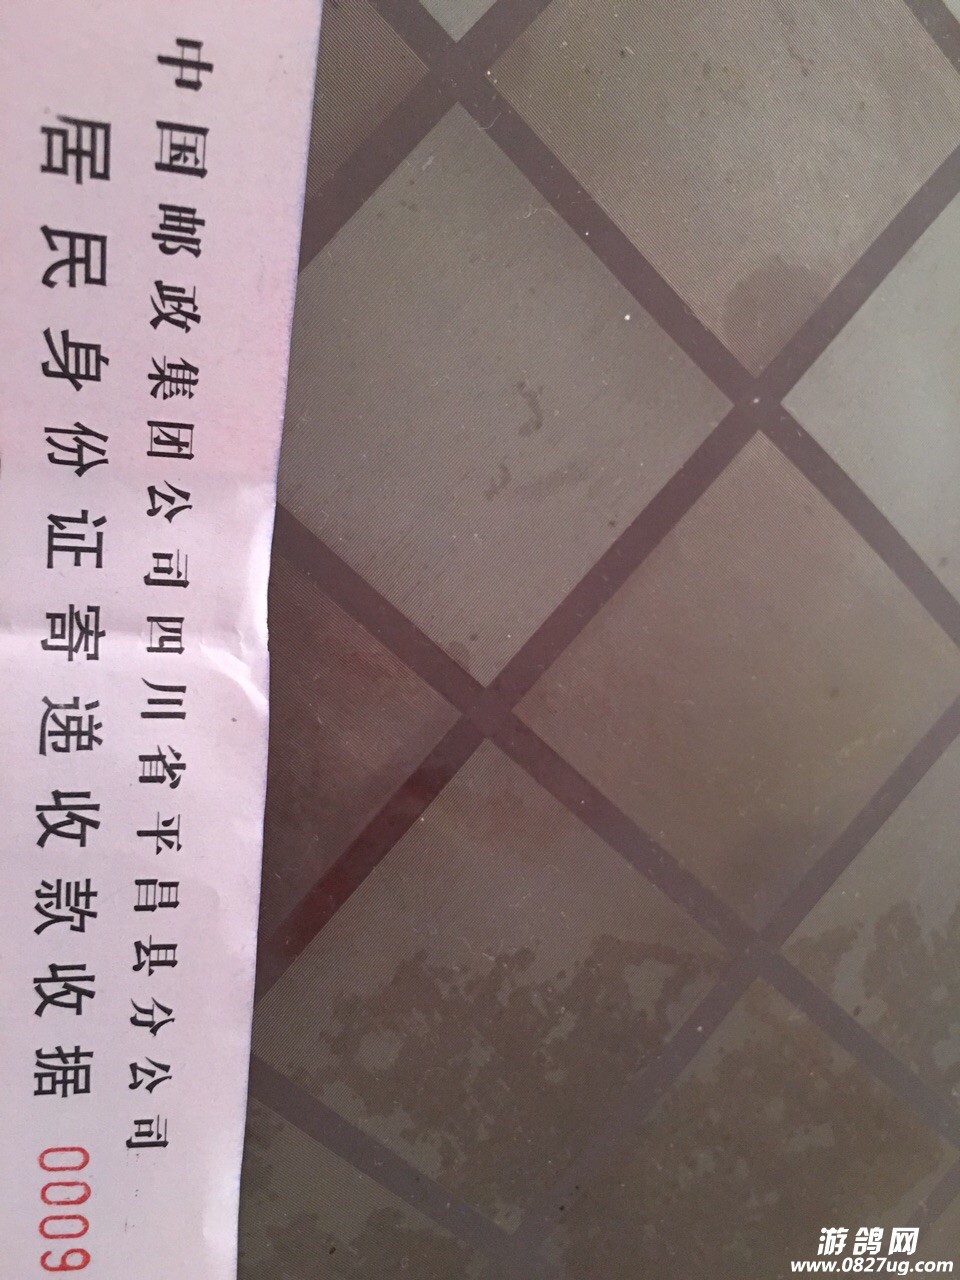 中国邮政集团公司四川省平昌县分公司
居民身份证寄递收款收据 0009
游鸽网
www.0827ug.com